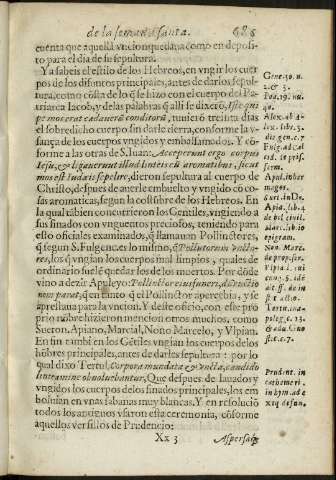 de la semana santa. 686
cuenta que aquella vncion quedaua como en deposi-
to para el dia de su sepultura.
Y a sabeis el estilo de los Hebreos, en vngir los cuer
pos de los difuntos principales, antes de darles sepul-
tura, como cõsta de lo q̃ se hizo con el cuerpo del Pa-
triarca Iacob, y de las palabras q̃ alli se dixerõ, Iste qui
pe mos erat cadauerũ conditorũ, tuuierõ treinta dias
el sobredicho cuerpo sin darle tierra, conforme la v-
sança de los cuerpos vngidos y embalsamados. Y cõ
forme a las otras de S. Iuan: Acceperunt ergo corpus
Iesu, & ligauerunt illud linteis cũ aromatibus, sicut
mos est Iudæis sepelire, dieron sepultura al cuerpo de
Christo, despues de auerle embuelto y vngido cõ co-
sas aromaticas, segun la costũbre de los Hebreos. En
la qual tãbien concurrieron los Gentiles, vngiendo a
sus finados con vnguentos preciosos, teniendo para
esto oficiales examinados, q̃ llamauan Pollinctores,
q̃ segun S. Fulgenc. es lo mismo, q̃ Pollutorum vncto-
res, los q̃ vngian los cuerpos mal limpios, quales de
ordinario suelē quedar los de los muertos. Por dõde
vino a dezir Apuleyo: Pollinctor eius funeri, dũ vnctio
nem parat, q̃ en tanto q̃ el Pollinctor apercebia, y se
aprestaua para la vnctura. Y deste oficio, con este pro
prio nõbre hizieron mencion otros muchos, como
Sueron. Apiano, Marcial, Nono Marcelo, y Vlpian.
En fin tambiē en los Gētiles vngian los cuerpos de los
hõbres principales, antes de darles sepultura: por lo
qual dixo Tertul. Corpora mundata & vncta, candido
linteamine obuoluebantur, Que despues de lauados y
vngidos los cuerpos de los finados principales, los em
boluian en vnas sabanas muy blancas. Y en resoluciõ
todos los antiguos vsaron esta ceremonia, cõforme
aquellos versillos de Prudencio:
Xx 3 Aspersaq;
Gene. 50. n.
2. & 3.
Ioa. 19. nu.
40.
Alex. ab A-
lex. libr. 3.
die. gen. c. 7
Apul. in her
magor.
Apia. lib. 4
de bel. ciuil.
Mar. lib. 10
epigram.
Non. Marc.
Tertu. in a-
polog. c. 13.
Prudent. in
cathemeri.
in hym. ad e